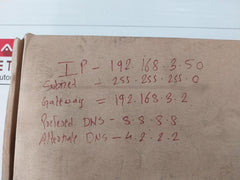 IP - 192.168.3.50
Subnet = 255.255.255.0
Gateway = 192.168.3.2
Prefered DNS - 8.8.8.8
Alternate DNS - 4.2.2.2